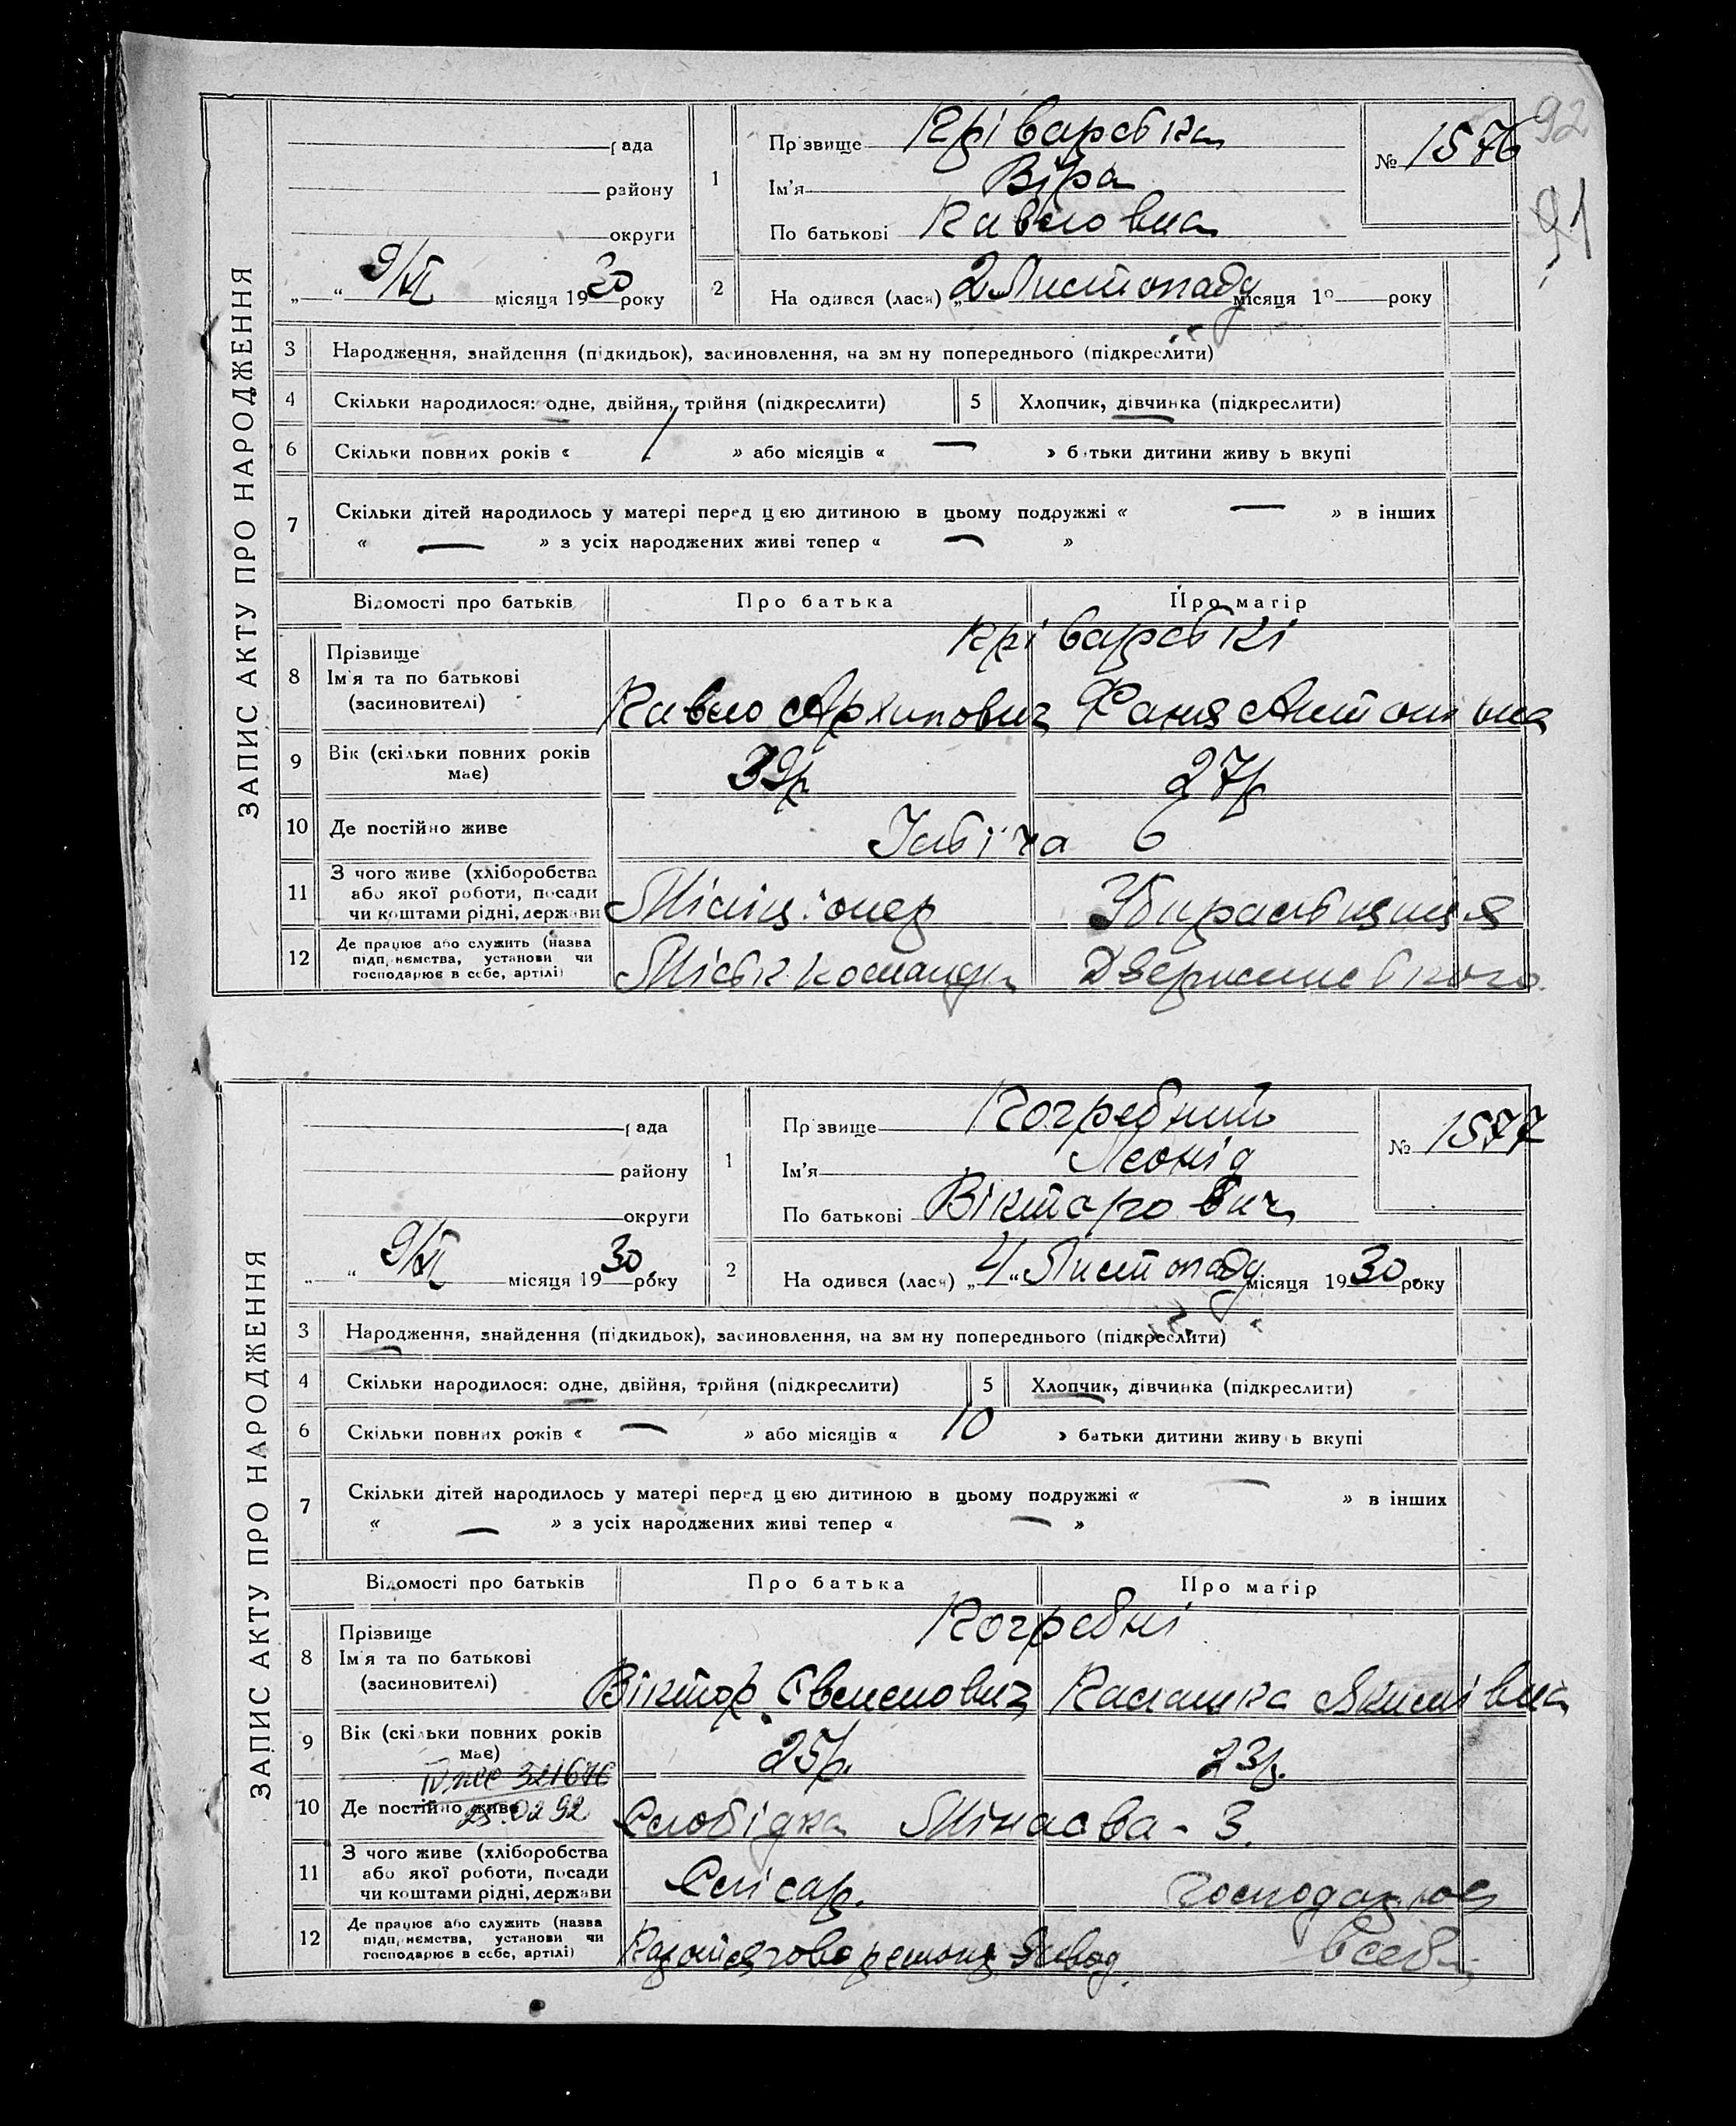 92
91
ЗАПИС АКТУ ПРО НАРОДЖЕННЯ
рада
району
округи
„ “ 9/XI місяця 1930 року
1
Прізвище
Ім'я Віра
По батькові Павловна
№ 1576
2
На одився (лась) „2 Листопаду місяця 19 року
3 Народження, знайдення (підкидьок), засиновлення, на зм ну попереднього (підкреслити)
4 Скільки народилося: одне, двійня, трійня (підкреслити) 5 Хлопчик, дівчинка (підкреслити)
6 Скільки повних років « / » або місяців « — » батьки дитини живу ь вкупі
7 Скільки дітей народилось у матері перед цєю дитиною в цьому подружжі « — » в інших
« — » з усіх народжених живі тепер « — »
Відомості про батьків Про батька Про матір
8 Прізвище
Ім'я та по батькові
(засиновителі)
Павло Архипович Фаня Антонівна
9 Вік (скільки повних років має) 39р 27р
10 Де постійно живе 6
11 З чого живе (хліборобства або якої роботи, посади чи коштами рідні, держави Міліціонер
12 Де працює або служить (назва підприємства, установи чи господарює в себе, артілі) Міськ. команда
ЗАПИС АКТУ ПРО НАРОДЖЕННЯ
рада
району
округи
„ “ 9/XI місяця 1930 року
1
Прізвище Погребний
Ім'я Леонід
По батькові Вікторович
№ 1577
2
На одився (лась) „4“ Листопаду місяця 1930 року
3 Народження, знайдення (підкидьок), засиновлення, на зм ну попереднього (підкреслити)
4 Скільки народилося: одне, двійня, трійня (підкреслити) 5 Хлопчик, дівчинка (підкреслити)
6 Скільки повних років « — » або місяців « 10 » батьки дитини живу ь вкупі
7 Скільки дітей народилось у матері перед цєю дитиною в цьому подружжі « — » в інших
« — » з усіх народжених живі тепер « — »
Відомості про батьків Про батька Про матір
Погребні
8 Прізвище
Ім'я та по батькові
(засиновителі)
Віктор
9 Вік (скільки повних років має) 25р. 23р.
10 Де постійно живе Слобідка - 3.
11 З чого живе (хліборобства або якої роботи, посади чи коштами рідні, держави Слісар. господарює
12 Де працює або служить (назва підприємства, установи чи господарює в себе, артілі) Паротягово ремонт. Завод. в себе